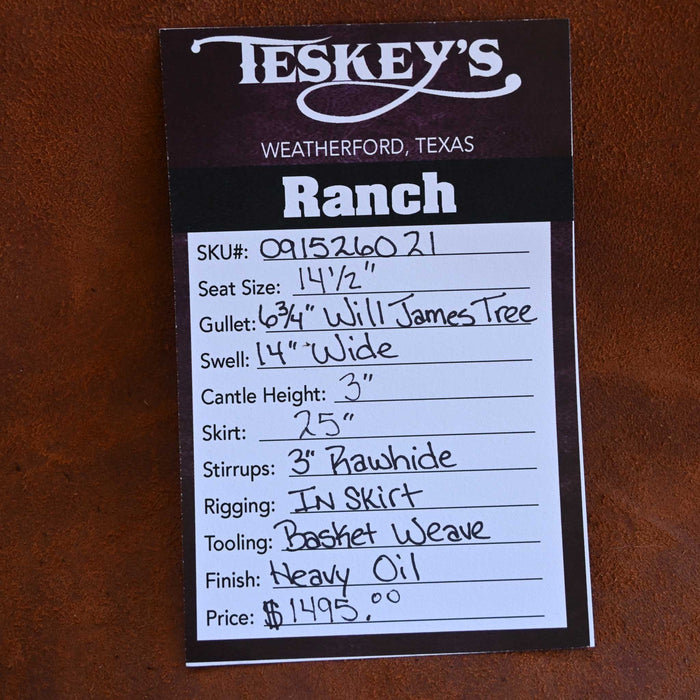 TESKEY'S
WEATHERFORD, TEXAS
Ranch
SKU#: 091526021
Seat Size: 14 1/2"
Gullet: 6 3/4" Will James Tree
Swell: 14" Wide
Cantle Height: 3"
Skirt: 25"
Stirrups: 3" Rawhide
Rigging: IN SKirt
Tooling: Basket Weave
Finish: Heavy Oil
Price: $1495.00